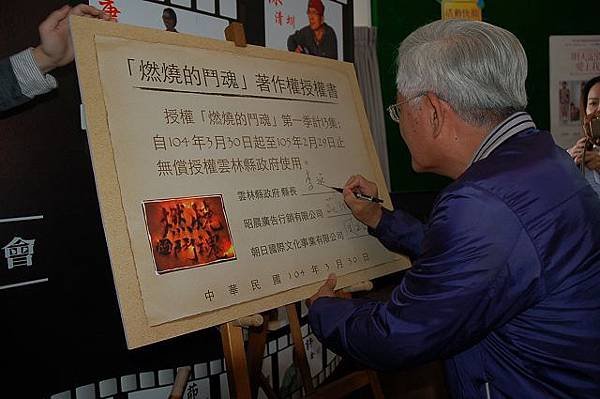 唐
陳
清圳
活動快報
「燃燒的鬥魂」著作權授權書
授權「燃燒的鬥魂」第一季計13集;
自104年3月30日起至105年2月29日止
無償授權雲林縣政府使用。
雲林縣政府 縣長
昭晨廣告行銷有限公司
朝日國際文化事業有限公司
燃燒
的鬥魂
中華民國104年3月30日
會